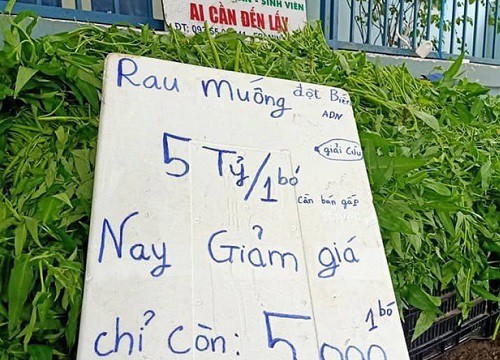 SINH VIÊN
AI CẦN ĐẾN LẤY
Rau muống đột Biến
ADN
giải cứu
5 Tỷ/1bó
cần bán gấp
Nay Giảm giá
chỉ còn: 5 000 1bó